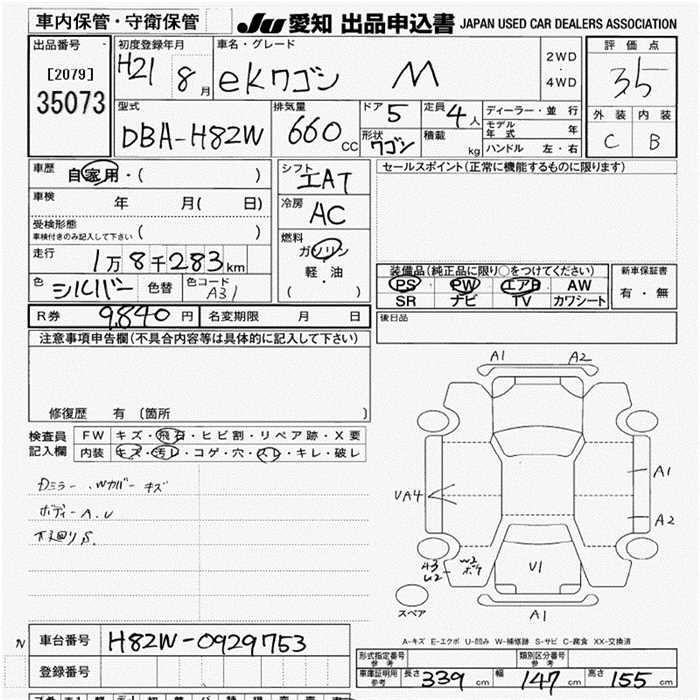 車内保管・守衛保管
JU 愛知 出品申込書 JAPAN USED CAR DEALERS ASSOCIATION
出品番号
[2079]
35073
初度登録年月
H21 8月
車名・グレード
ekワゴン M
2WD
・
4WD
評価点
3.5
外装 内装
C B
型式
DBA-H82W
排気量
660cc
ドア 5
形状 ワゴン
定員 4人
積載 kg
ディーラー・並行
モデル年式 年
ハンドル 左・右
車歴 自家用・( )
車検 年 月( 日)
受検形態
車検付きのみ記入して下さい ( )
走行 1万8千283km
色 シルバー 色替 色コード A31
シフト
エAT
冷房
AC
燃料
ガソリン
軽・油
( )
セールスポイント(正常に機能するものに限ります)
装備品(純正品に限り○をつけてください)
PS PW エアB AW
SR ナビ TV カワシート
新車保証書
有・無
R券 9,840円 名変期限 月 日
後日品
注意事項申告欄(不具合内容等は具体的に記入して下さい)
修復歴 有 〔箇所 〕
検査員記入欄
FW キズ・飛石・ヒビ割・リペア跡・X要
内装 キズ・汚レ・コゲ・穴・スレ・キレ・破レ
Dミラー、Wカバー キズ
ボディーA.U
下廻りS.
A1 A2
UA4
A1
A2
A3
U2
W2
ボケ
U1
スペア
A1
A-キズ E-エクボ U-凹み W-補修跡 S-サビ C-腐食 XX-交換済
N 車台番号 H82W-0929753
登録番号
形式指定番号 参考
類別区分番号 参考
車庫証明用 参考 長さ 339cm 幅 147cm 高さ 155cm